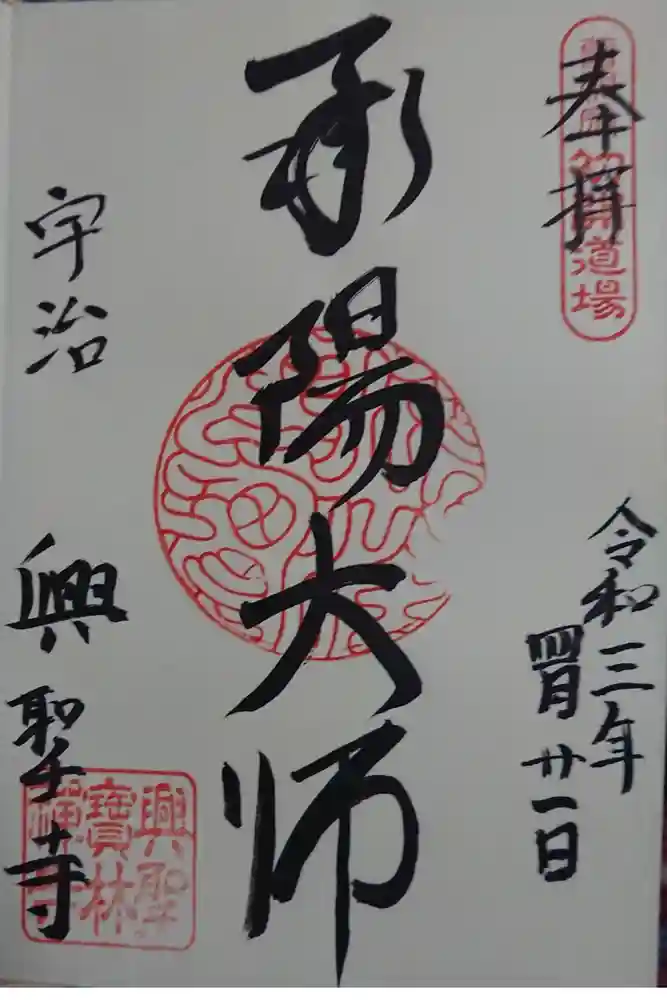 奉拝
初開道場
令和三年
四月廿一日
承陽大師
宇治
興聖寺
興聖
寶林
禪寺